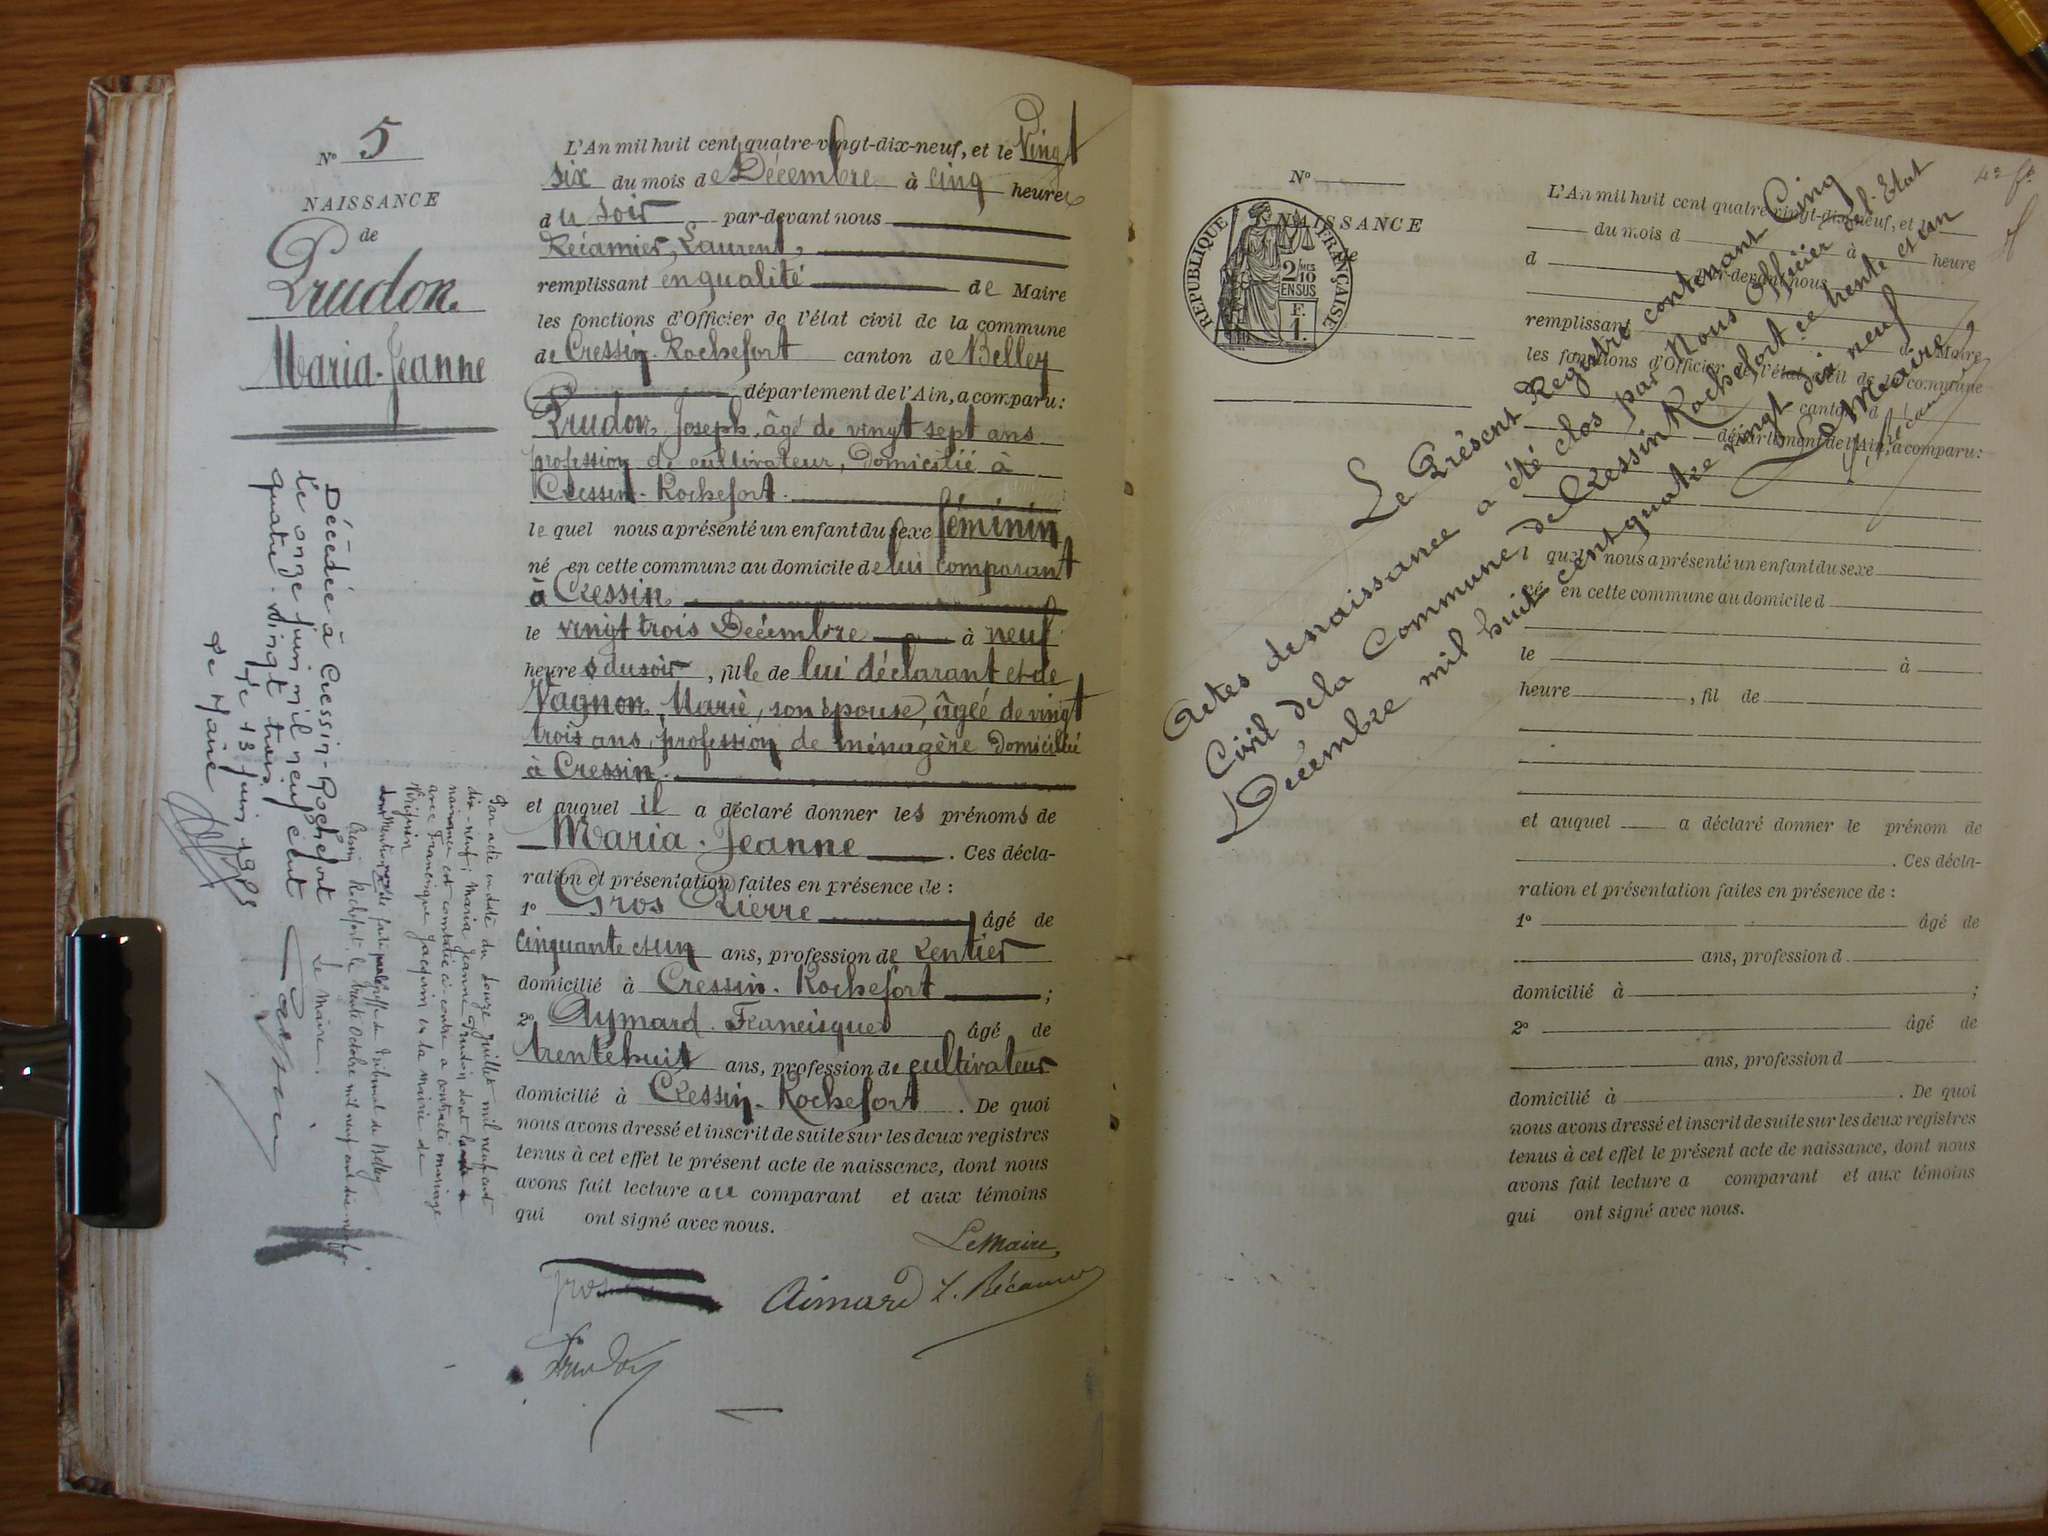 N° 5
NAISSANCE
de
Prudon
Maria-Jeanne
L'An mil huit cent quatre-vingt-dix-neuf, et le Vingt
six du mois de Décembre à cinq heures
du soir par-devant nous
Récamier, Laurent,
remplissant en qualité de Maire
les fonctions d'Officier de l'état civil de la commune
de Cressin-Rochefort canton de Belley
département de l'Ain, a comparu:
Prudon Joseph, âgé de vingt sept ans
profession de cultivateur, Domicilié à
Cressin-Rochefort.
le quel nous a présenté un enfant du sexe féminin
né en cette commune au domicile de lui comparant
à Cressin
le vingt trois Décembre à neuf
heures du soir, fille de lui déclarant et de
Vagnon Marie, son épouse, âgée de vingt
trois ans, profession de ménagère Domiciliée
à Cressin.
et auquel il a déclaré donner les prénoms de
Maria-Jeanne. Ces décla-
ration et présentation faites en présence de :
1° Gros Pierre âgé de
cinquante et un ans, profession de rentier
domicilié à Cressin-Rochefort ;
2° Aymard Francisque âgé de
trente huit ans, profession de cultivateur
domicilié à Cressin-Rochefort. De quoi
nous avons dressé et inscrit de suite sur les deux registres
tenus à cet effet le présent acte de naissance, dont nous
avons fait lecture au comparant et aux témoins
qui ont signé avec nous.
Le Maire,
Gros
Aimard L. Récamier
Prudon
Décédée à Cressin-Rochefort
le onze juin mil neuf cent
quatre-vingt trois
Le 13 juin 1983
Le Maire
Par acte en date du douze Juillet mil neuf cent
dix-neuf, Maria Jeanne Prudon dont la
naissance est constatée ci-contre a contracté mariage
avec Francisque Jacquin en la mairie de
Virignin
dont Mention faite au greffe du Tribunal de Belley
Cressin Rochefort, le trente Octobre mil neuf cent dix-neuf.
Le Maire.
N°
NAISSANCE
de
RÉPUBLIQUE FRANÇAISE
2/MES 10
EN SUS
F.
1.
L'An mil huit cent quatre-vingt-dix-neuf, et
du mois d à heure
d par-devant nous
remplissant d Maire
les fonctions d'Officier de l'état civil de la commune
d canton d
département de l'Ain, a comparu:
l quel nous a présenté un enfant du sexe
né en cette commune au domicile d
le à
heure , fil de
et auquel a déclaré donner le prénom de
. Ces décla-
ration et présentation faites en présence de :
1° âgé de
ans, profession d
domicilié à ;
2° âgé de
ans, profession d
domicilié à . De quoi
nous avons dressé et inscrit de suite sur les deux registres
tenus à cet effet le présent acte de naissance, dont nous
avons fait lecture a comparant et aux témoins
qui ont signé avec nous.
Le Présent Registre contenant Cinq
Actes de naissance a été clos par Nous Officier de l'Etat
Civil de la Commune de Cressin Rochefort ce trente et un
Décembre mil huit cent quatre vingt dix neuf
Le Maire,
L. Récamier